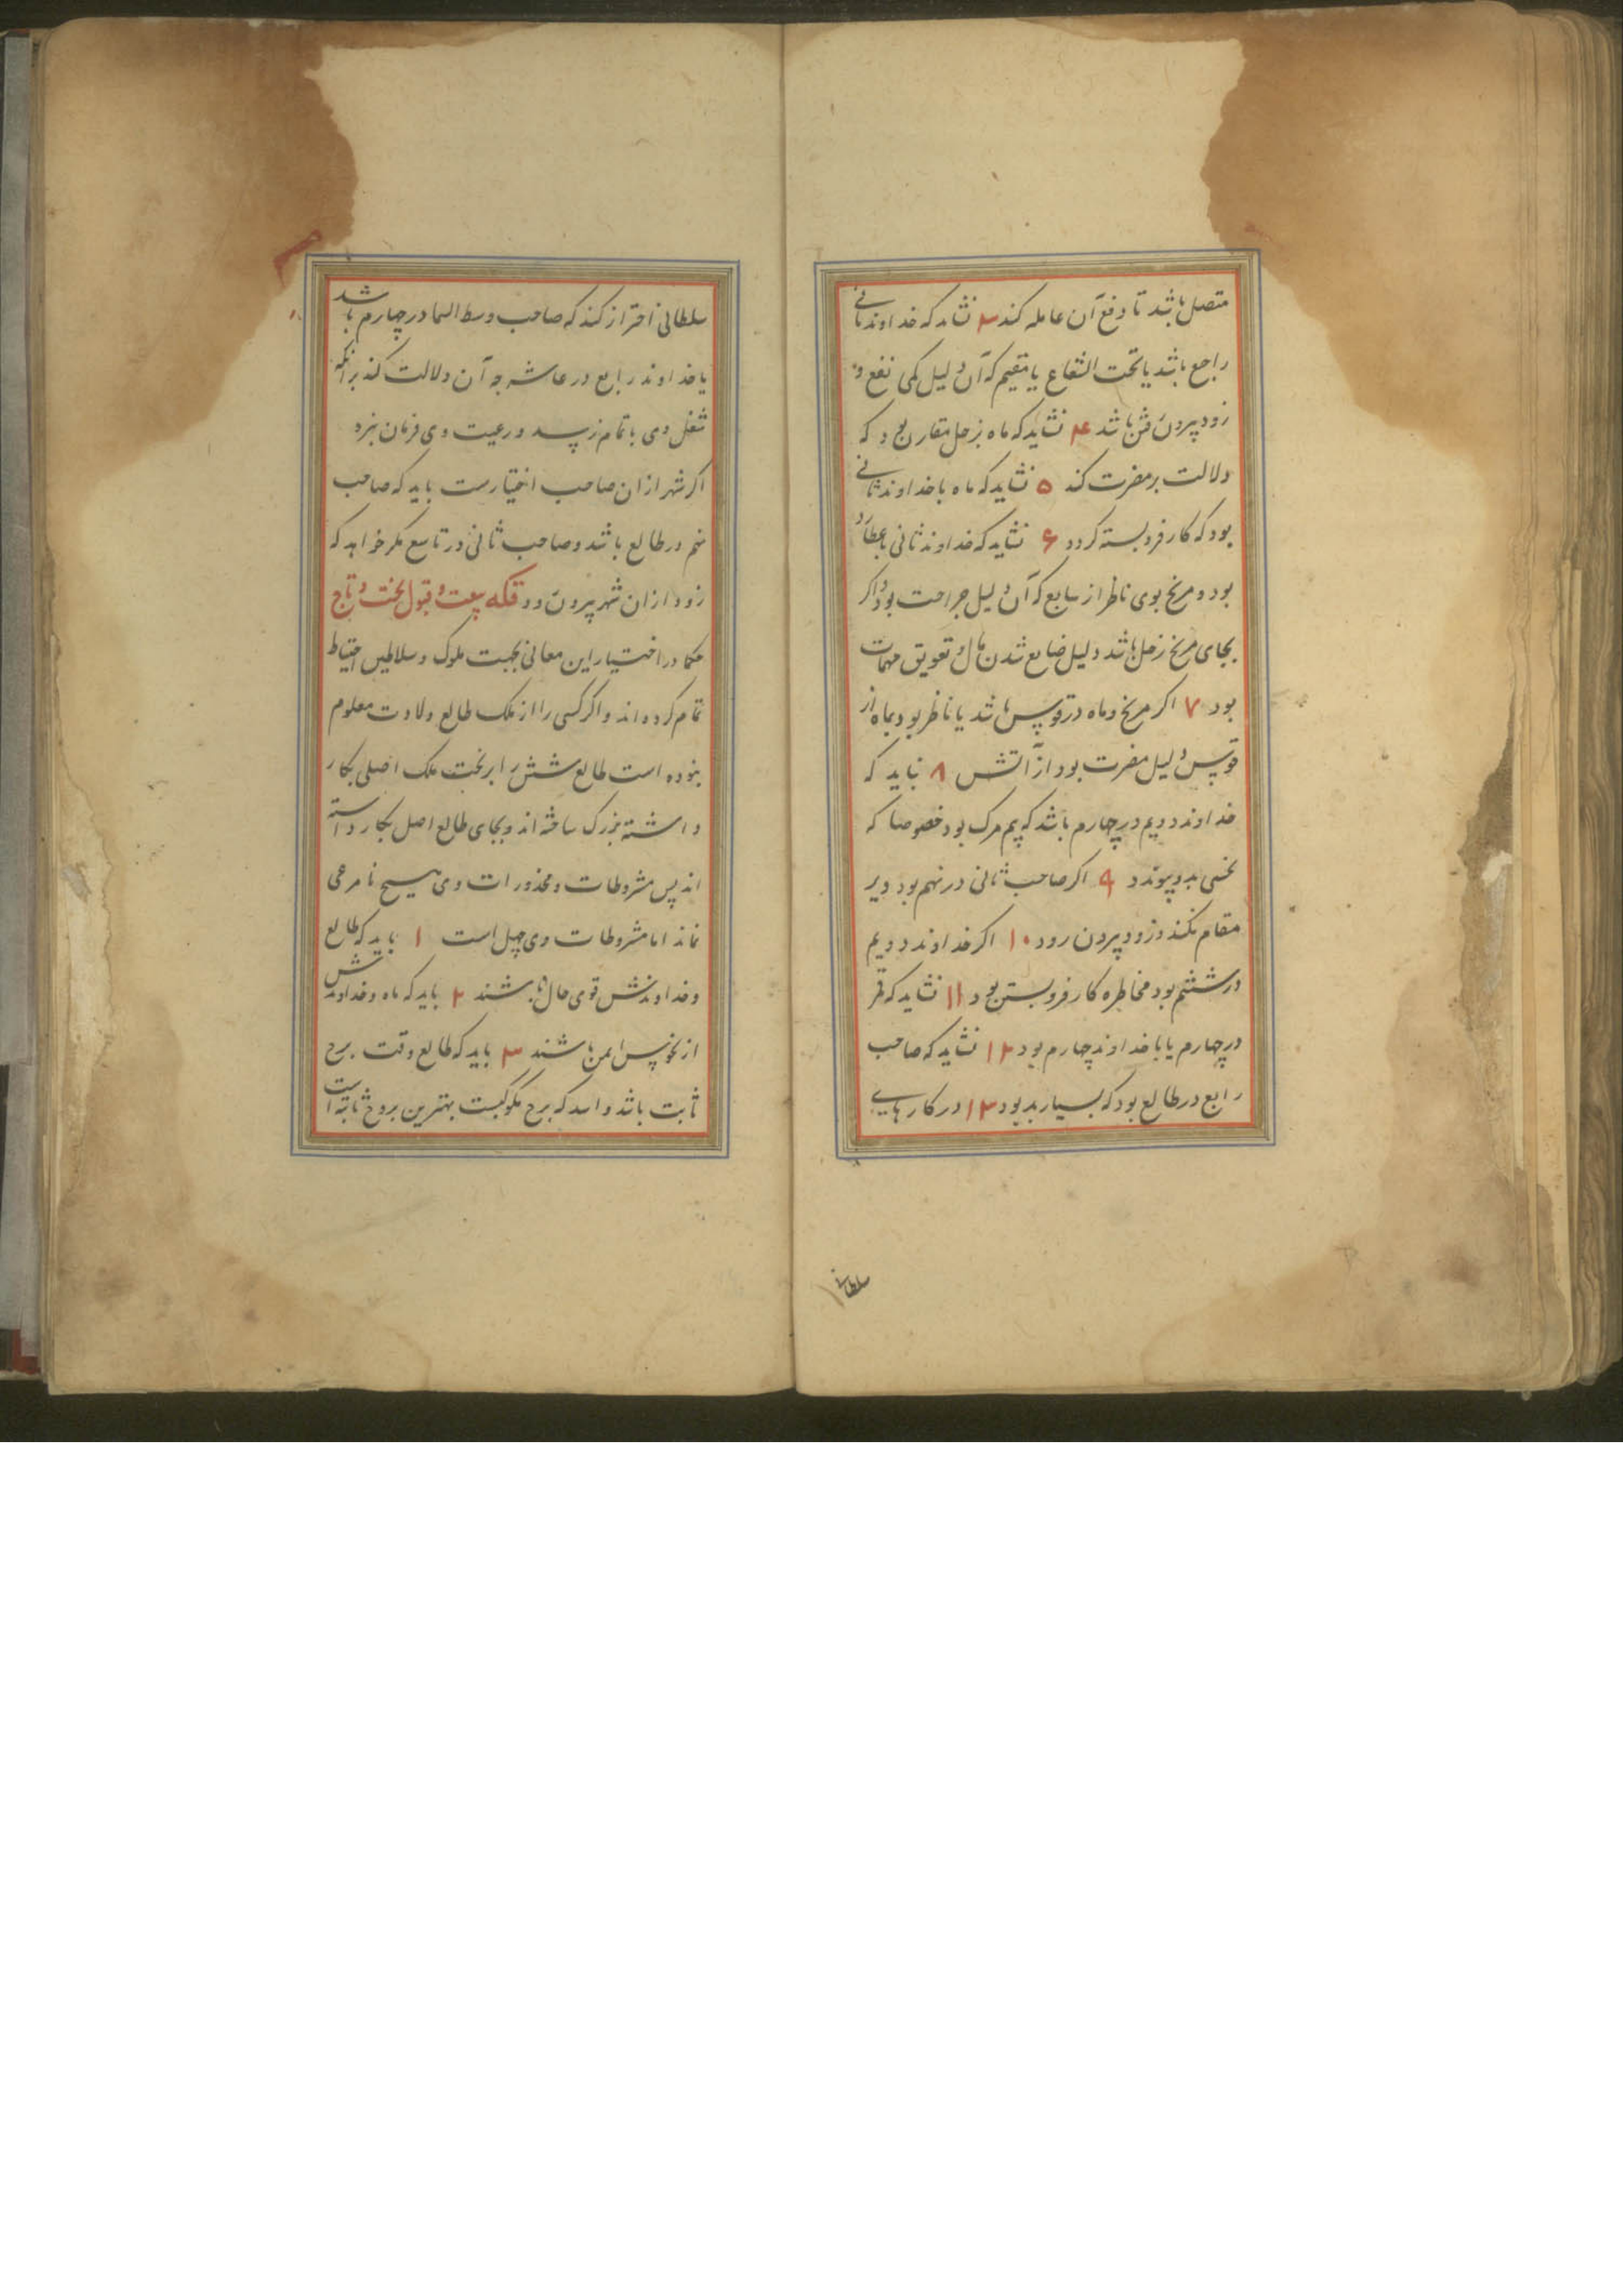 متصل باشد تا دفع آن عامله کند ۳ نشاید که خداوند ثانی
راجع باشد یا تحت الشعاع یا مقیم که آن دلیل کمی نفع و
زود بیرون شدن باشد ۴ نشاید که ماه بزحل مقارن بود که
دلالت بر مضرت کند ۵ نشاید که ماه با خداوند ثانی
بود که کار فروبسته کردد ۶ نشاید که خداوند ثانی با عطارد
بود و مریخ بوی ناظر از سابع که آن دلیل جراحت بود و اکر
بجای مریخ زحل باشد دلیل ضایع شدن مال و تعویق مهمات
بود ۷ اکر مریخ و ماه در قوس باشد یا ناظر بود بماه از
قوس دلیل مضرت بود از آتش ۸ نباید که
خداوند دویم در چهارم باشد که بیم مرک بود خصوصا که
نحسی بدو پیوندد ۹ اکر صاحب ثانی در نهم بود دیر
مقام نکند و زود بیرون رود ۱۰ اکر خداوند دویم
در ششم بود مخاطره کار فروبستن بود ۱۱ نشاید که قمر
در چهارم یا با خداوند چهارم بود ۱۲ نشاید که صاحب
رابع در طالع بود که بسیار بد بود ۱۳ در کارهای
سلطانی
سلطانی احتراز کند که صاحب وسط السما در چهارم باشد
یا خداوند رابع در عاشر چه آن دلالت کند بر آنکه
شغل وی باتمام نرسد و رعیت وی فرمان نبرد
اکر شهر ازان صاحب اختیارست باید که صاحب
نهم در طالع باشد و صاحب ثانی در تاسع مکر خواهد که
زود ازان شهر بیرون رود بیعت و قبول تخت و تاج
حکما در اختیار این معانی بجهت ملوک و سلاطین احتیاط
تمام کرده اند و اکر کسی را از ملک طالع ولادت معلوم
نبوده است طالع نشستن را بر تخت ملک اصلی بکار
داشته بزرک ساخته اند و بجای طالع اصل بکار داشته
اند پس مشروطات و محذورات وی هیچ نامرعی
نماند اما مشروطات وی چهل است ۱ باید که طالع
و خداوندش قوی حال باشند ۲ باید که ماه و خداوندش
از نحوس ایمن باشند ۳ باید که طالع وقت برج
ثابت باشد و اسد که برج ملوکیست بهترین بروج ثابته است